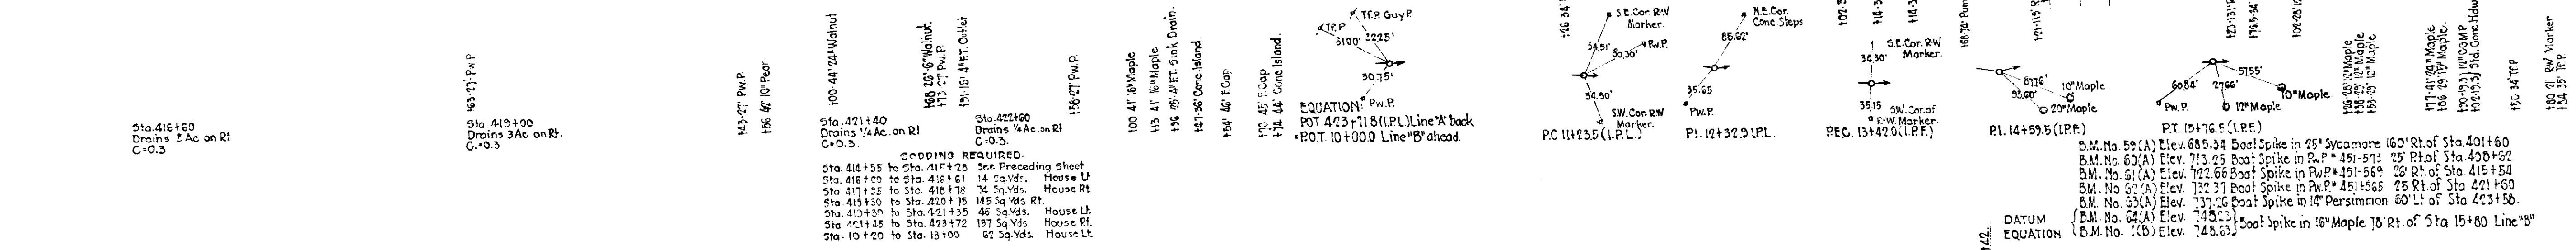 Sta. 416+60
Drains 8 Ac on Rt
C=0.3
+63-27' Pw.P.
Sta 419+00
Drains 3Ac on Rt.
C.=0.3
+43-27' Pw.P.
+56 42' 10" Pear
+00-44' 24" Walnut
Sta.421+40
Drains ¼ Ac. on Rt
C=0.3.
+68 26'-6" Walnut.
+73 27' Pw.P.
+91-16' 4" F.T. Outlet
Sta.422+60
Drains ¼ Ac. on Rt
C=0.3.
+58-27' Pw.P.
SODDING REQUIRED.
Sta. 414+55 to Sta. 415+28 See Preceding Sheet
Sta. 416+00 to Sta. 416+61 14 Sq.Yds. House Lt
Sta. 417+35 to Sta. 418+78 74 Sq.Yds. House Rt.
Sta. 419+30 to Sta. 420+75 145 Sq.Yds Rt.
Sta. 419+30 to Sta. 421+35 46 Sq.Yds. House Lt.
Sta. 421+45 to Sta. 423+72 137 Sq.Yds. House Rt.
Sta. 10+20 to Sta. 13+00 62 Sq.Yds. House Lt
+00 41' 16" Maple
+13 41' 16" Maple
+36 25' 4" F.T. Sink Drain.
+47-36' Conc. Island.
+54' 46' F. Cap
+70 45' F. Cap
+74 44' Conc Island.
TEP. Guy P.
TEP
51.00'
32.25'
30.75'
Pw.P.
EQUATION:
POT 423+71.8 (I.P.L) Line "A" back
=P.O.T. 10+00.0 Line "B" ahead.
+26 34'
S.E. Cor. R-W
Marker.
34.51'
30.30'
Pw.P.
34.50'
S.W. Cor. R-W
Marker.
P.C 11+23.5 (I.P.L.)
N.E. Cor.
Conc Steps
85.62'
35.65
Pw.P.
P.I. 12+32.9 I.P.L.
S.E. Cor. R-W
Marker.
34.30'
35.15
S.W. Cor. of
R-W. Marker.
P.E.C. 13+42.0 (I.P.F.)
+68-74'
+21-115'
87.76'
10" Maple
20" Maple
P.I. 14+59.5 (I.P.F.)
+23-131'
+76.5-34'
+02-28'
60.84'
27.66'
57.55'
Pw.P.
12" Maple
10" Maple
P.T. 15+76.5 (I.P.F.)
+26-28' 12" Maple
+38-29' 12" Maple
+53-29' 10" Maple
+77-41' 24" Maple
+86 29' 15" Maple.
+50 34' TEP
+80 21' RW Marker
+84 35' TEP.
B.M. No. 59 (A) Elev. 685.34 Boat Spike in 25" Sycamore 160' Rt. of Sta. 401+60
B.M. No. 60 (A) Elev. 713.25 Boat Spike in Pw.P.# 451-573 25' Rt. of Sta. 408+62
B.M. No. 61 (A) Elev. 722.66 Boat Spike in Pw.P.# 451-569 26' Rt. of Sta. 415+54
B.M. No 62 (A) Elev. 732.37 Boat Spike in Pw.P.# 451+565 25 Rt. of Sta 421+60
B.M. No. 63 (A) Elev. 737.26 Boat Spike in 14" Persimmon 60' Lt of Sta 423+58.
DATUM
EQUATION
B.M. No. 64 (A) Elev. 748.23
B.M. No. 1 (B) Elev. 748.63
Boat Spike in 16" Maple 78' Rt. of Sta 15+80 Line "B"